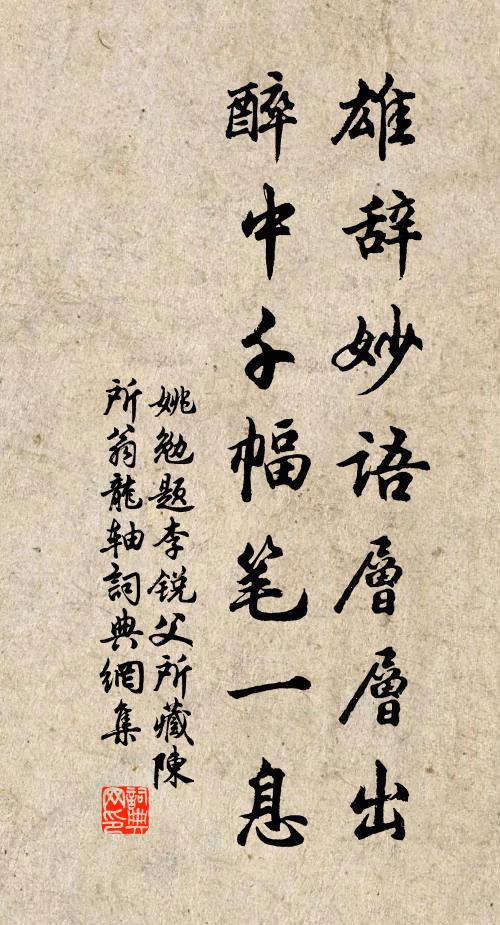 雄辞妙语層層出
醉中千幅笔一息
姚勉题李锐父所藏陳
所翁龍轴詞典網集
詞典网印